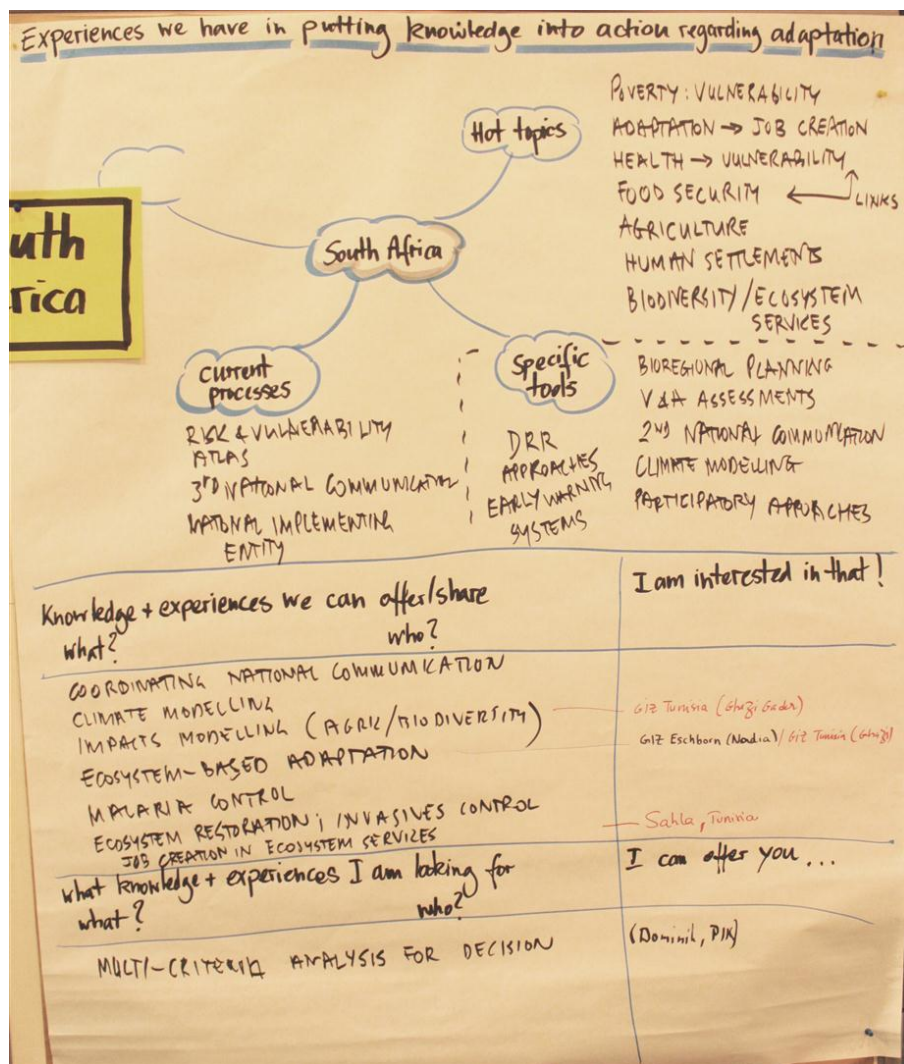 Experiences we have in putting knowledge into action regarding adaptation
Hot topics
POVERTY : VULNERABILITY
ADAPTATION → JOB CREATION
HEALTH → VULNERABILITY
FOOD SECURITY ← LINKS
AGRICULTURE
HUMAN SETTLEMENTS
BIODIVERSITY / ECOSYSTEM
SERVICES
uth
rica
South Africa
current
processes
RISK & VULNERABILITY
ATLAS
3RD NATIONAL COMMUNICATION
NATIONAL IMPLEMENTING
ENTITY
Specific
tools
DRR
APPROACHES
EARLY WARNING
SYSTEMS
BIOREGIONAL PLANNING
V&A ASSESSMENTS
2ND NATIONAL COMMUNICATION
CLIMATE MODELLING
PARTICIPATORY APPROACHES
Knowledge + experiences we can offer/share
what? who?
I am interested in that!
COORDINATING NATIONAL COMMUNICATION
CLIMATE MODELLING
IMPACTS MODELLING (AGRIC/BIODIVERSITY)
GIZ Tunisia (Ghazi Gader)
ECOSYSTEM-BASED ADAPTATION
GIZ Eschborn (Nadia) / GIZ Tunisia (Ghazi)
MALARIA CONTROL
ECOSYSTEM RESTORATION; INVASIVES CONTROL
JOB CREATION IN ECOSYSTEM SERVICES
Sahla, Tunisia
what knowledge + experiences I am looking for
what? who?
I can offer you ...
MULTI-CRITERIA ANALYSIS FOR DECISION
(Dominik, PIK)